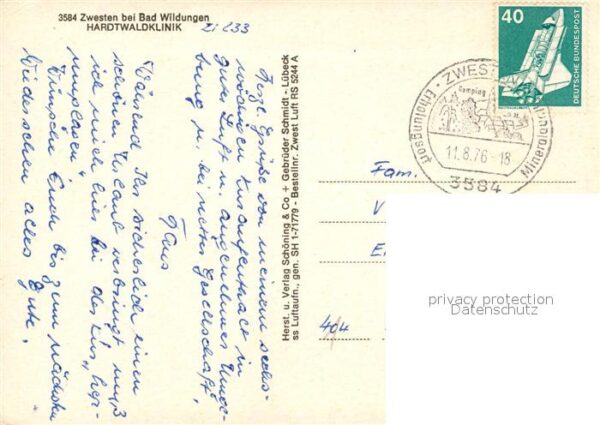 3584 Zwesten bei Bad Wildungen
HARDTWALDKLINIK
Zi 233
Herzl. Grüße von meinem sechs-
wöchigen Kuraufenthalt in
guter Luft u. angenehmer Umge-
bung u. bei netter Gesellschaft,
Hans
Während Ihr sicherlich einen
schönen Urlaub verbringt muß
ich mich hier bei der
Wünsche Euch bis zum nächsten
Wiedersehen alles Gute.
Herst. u. Verlag Schöning & Co + Gebrüder Schmidt - Lübeck
ss Luftaufn., gen. SH 1-71779 - Bestellnr. Zwest Luft RS 5244 A
40
DEUTSCHE BUNDESPOST
ZWESTEN
Camping
11.8.76-18
3584
Fam.
V
E
404
privacy protection
Datenschutz